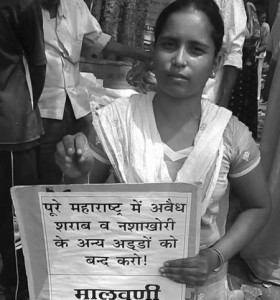 पूरे महाराष्ट्र में अवैध
शराब व नशाखोरी
के अन्य अड्डों को
बन्द करो!
मालवणी